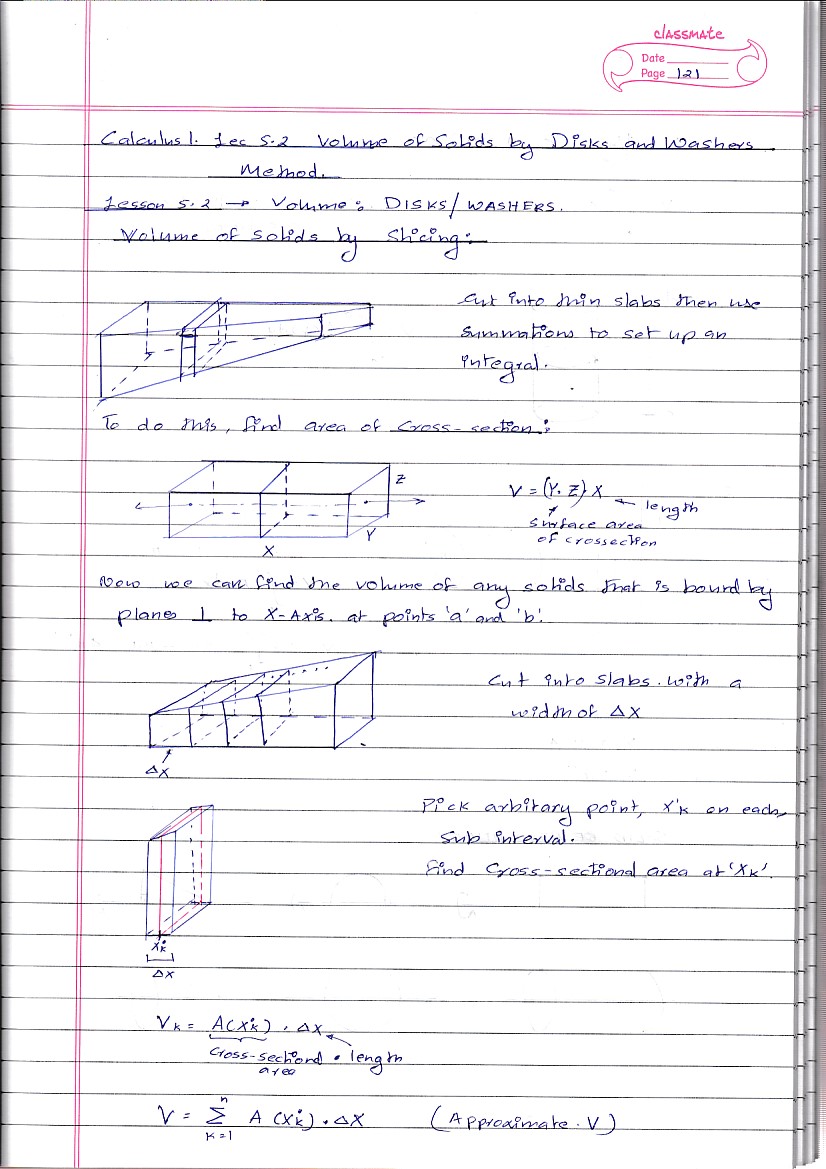 classmate
Date
Page 121
Calculus 1. Lec 5.2 Volume of Solids by Disks and Washers
Method.
Lesson 5.2 → Volume: DISKS/WASHERS.
Volume of solids by Slicing:
Cut into thin slabs then use
summations to set up an
integral.
To do this, find area of cross-section:
Z
Y
X
V = (Y. Z) X ← length
surface area
of crossection
Now we can find the volume of any solids that is bound by
planes ⊥ to X-Axis. at points 'a' and 'b'.
Cut into slabs. with a
width of ΔX
ΔX
Pick arbitary point, X*k on each,
Sub interval.
find Cross-sectional area at 'X*k'.
X*k
ΔX
Vk = A(X*k) . ΔX
Cross-sectional • length
area
V = Σ A (X*k) . ΔX (Approximate . V)
n
K=1